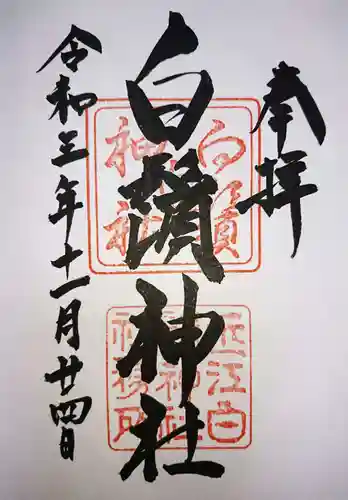 奉拝
白鬚神社
令和三年十一月廿四日
白須神社
近江白鬚神社社務所